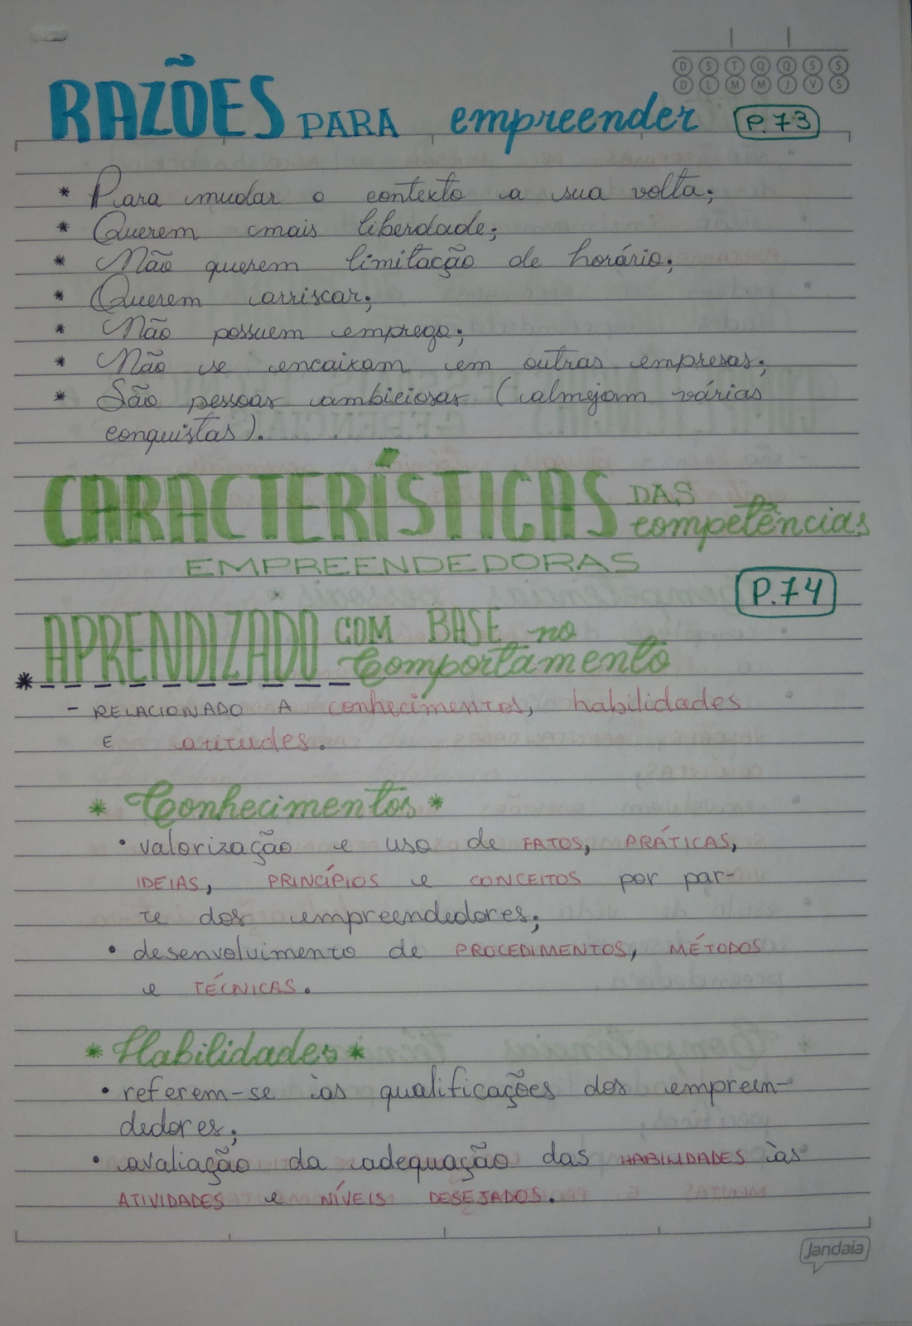 D S T Q Q S S
D L M M J V S
RAZÕES PARA empreender P.73
* Para mudar o contexto a sua volta;
* Querem mais liberdade;
* Não querem limitação de horário;
* Querem arriscar;
* Não possuem emprego;
* Não se encaixam em outras empresas;
* São pessoas ambiciosas (almejam várias
conquistas).
CARACTERÍSTICAS DAS
competências
EMPREENDEDORAS
P.74
APRENDIZADO COM BASE no
* Comportamento
- RELACIONADO A conhecimentos, habilidades
E atitudes.
* Conhecimentos *
• valorização e uso de FATOS, PRÁTICAS,
IDEIAS, PRINCÍPIOS e CONCEITOS por par-
te dos empreendedores;
• desenvolvimento de PROCEDIMENTOS, MÉTODOS
e TÉCNICAS.
* Habilidades *
• referem-se às qualificações dos empreen-
dedores;
• avaliação da adequação das HABILIDADES às
ATIVIDADES e NÍVEIS DESEJADOS.
Jandaia